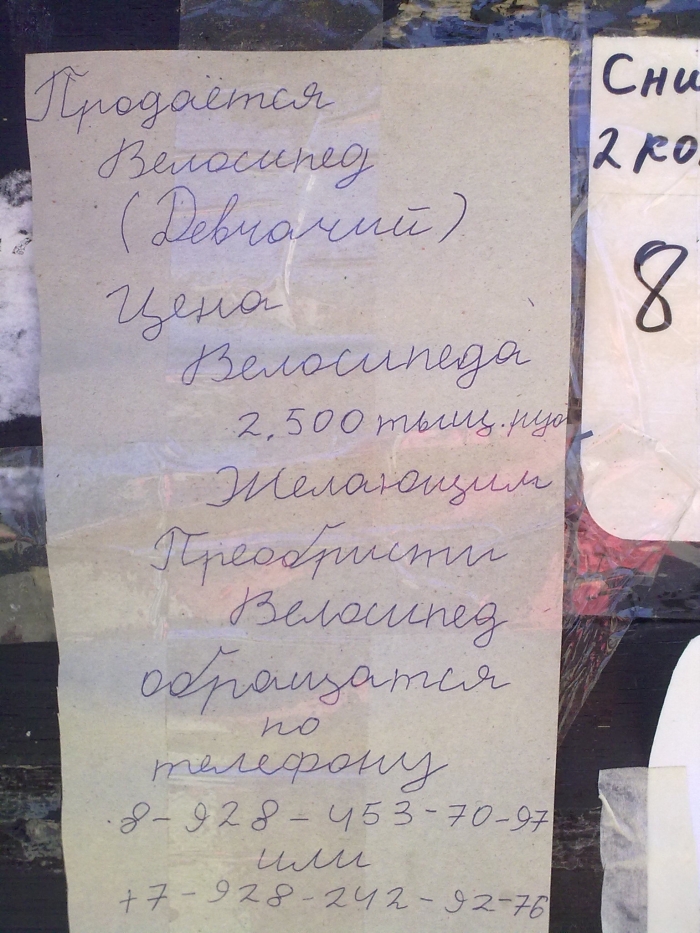 Продаётся
Велосипед
(Девчачий)
Цена
Велосипеда
2.500 тыщ. руб
Желающим
Преобристи
Велосипед
обращатся
по
телефону
8-928-453-70-97
или
+7-928-242-92-76
Сни
2 ко
8